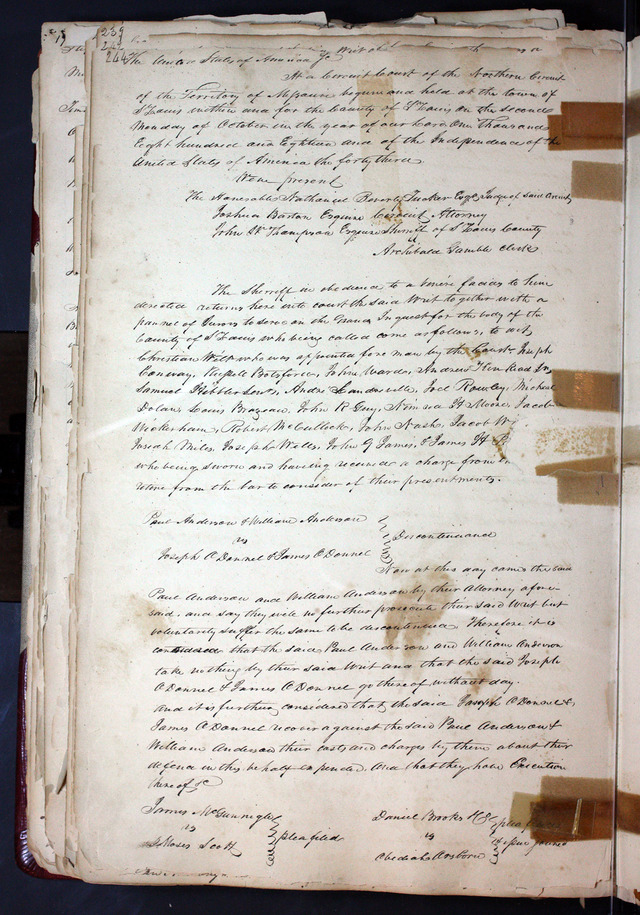 239
244
The United States of America
At a Circuit Court of the Northern Circuit
of the Territory of Missouri begun and held at the town of
St Louis within and for the County of St Louis on the second
Monday of October in the year of our Lord One thousand
Eight hundred and Eighteen and of the Independence of the
United States of America the forty third.
Were present
The Honorable Nathaniel Beverly Tucker Esqr Judge of said Circuit
Joshua Barton Esquire Circuit Attorney
John W Thompson Esquire Sheriff of St Louis County
Archibald Gamble Clerk
The Sheriff in obedience to a Venire facias to him
directed returns here into court the said Writ together with a
pannel of Jurors to serve on the Grand Inquest for the body of the
County of St Louis who being called come as follows, to wit,
Christian Wilt who was appointed foreman by the Court Joseph
Conway, Botsford, John Ward, Andrew Kinkead
Samuel Andre Landreville, Joel Rowley, Michael
Dolan, Louis Brazeau, John R Guy, H Moore, Jacob
Wickerham, Robert McCullock, John Nash, Jacob
Josiah Miles, Joseph Wells, John G James, & James H
who being sworn and having received a charge from
retire from the bar to consider of their presentments.
Paul Anderson & William Anderson
vs
Discontinuance
Joseph O Donnel & James O Donnel
Now at this day came the said
Paul Anderson and William Anderson by their Attorney afore
said, and say they will no further prosecute their said Writ but
voluntarily suffer the same to be discontinued. Therefore it is
considered that the said Paul Anderson and William Anderson
take nothing by their said Writ and that the said Joseph
O Donnel & James O Donnel go thereof without day.
and it is further considered that the said Joseph O Donnel &
James O Donnel recover against the said Paul Anderson &
William Anderson their costs and charges by them about their
defence in this behalf expended. And that they have Execution
thereof &c
James McGunnigle
vs
plea filed
Moses Scott
Daniel Brooks
vs
plea
& issue joined
Obediah Osborn